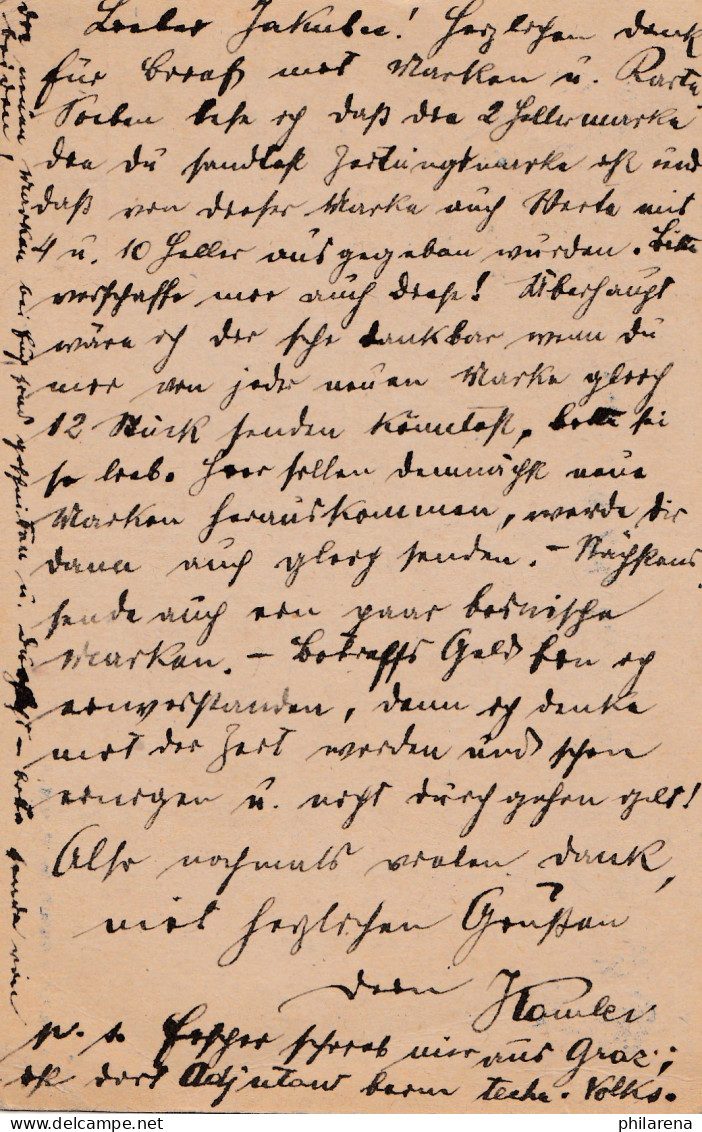 Lieber Jakuber! Herzlichen Dank
für Brief mit Marken u. Karte
Soeben lese ich daß die 2 Hellermarke
die du sandtest Zeitungsmarke ist und
daß von dieser Marke auch Werte mit
4 u. 10 Heller ausgegeben wurden. Bitte
verschaffe mir auch diese! Überhaupt
wäre ich dir sehr dankbar wenn du
mir von jeder neuen Marke gleich
12 Stück senden könntest, bitte sei
so lieb. Hier sollen demnächst neue
Marken herauskommen, werde dir
dann auch gleich senden. – Nächstens
sende auch ein paar bosnische
Marken. – Betreffs Geld bin ich
einverstanden, denn ich denke
mit der Zeit werden und schon
einigen u. nicht durchgehen gelt!
Also nochmals vielen Dank,
mit herzlichen Grüßen
Dein
p. s. Fischer schrieb mir aus Graz;
ist dort Adjutant beim techn. Volks.
die neuen Marken bei Euch sind geschnitten u. – bitte sende von
beiden!
philarena.com